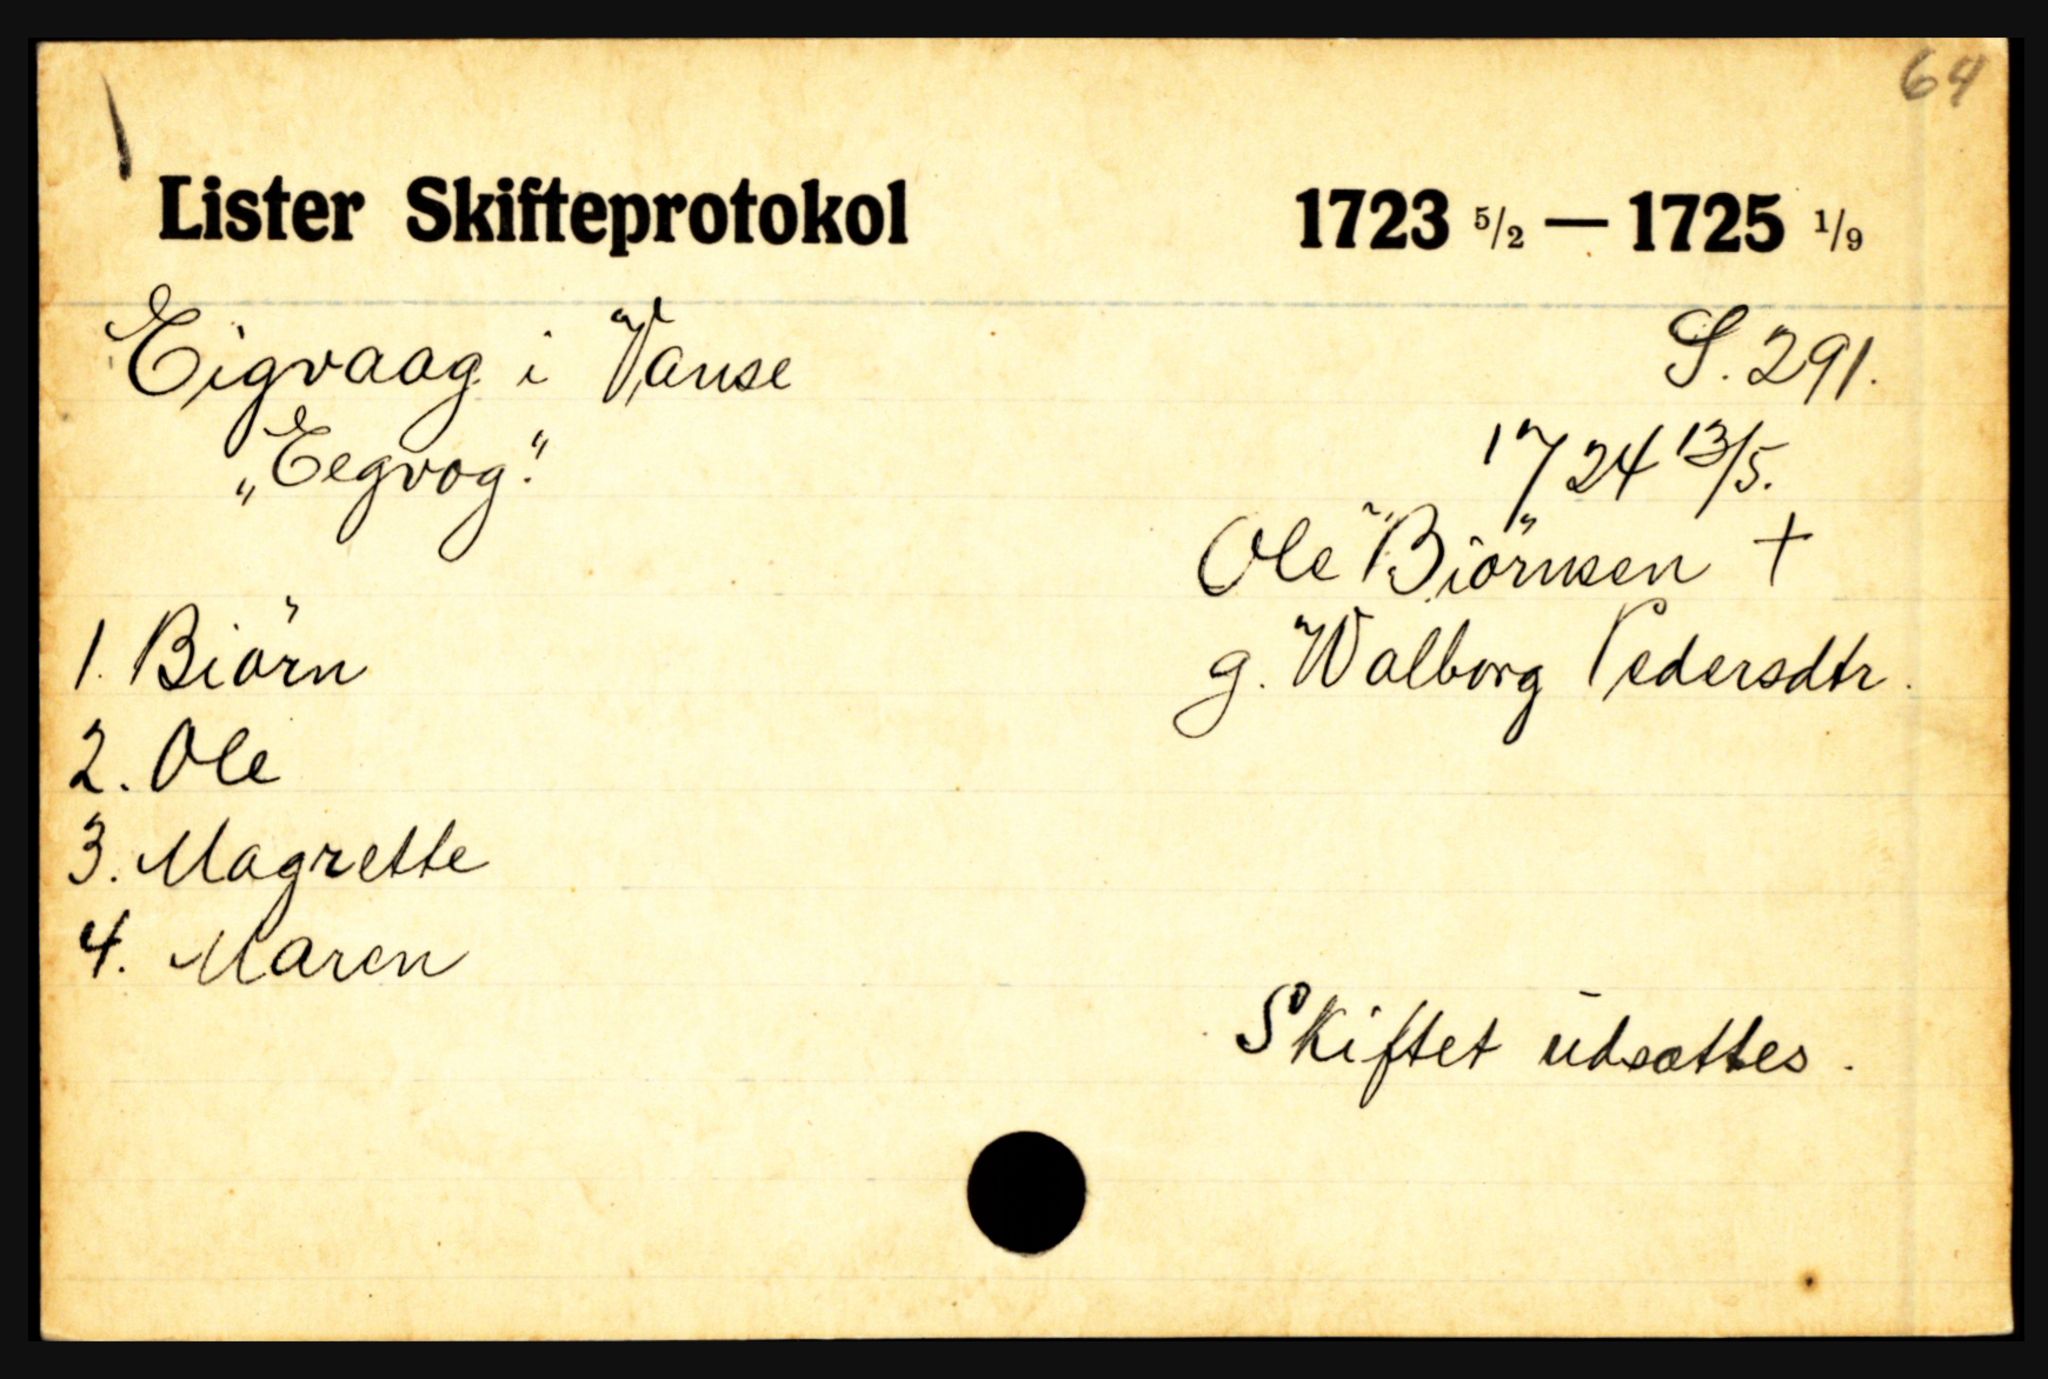 64
Lister Skifteprotokol 1723 5/2 — 1725 1/9
Eigvaag i Vanse S. 291.
„Eegvog." 1724 13/5.
Ole Biörnsen +
1. Biörn g. Walborg Pedersdtr.
2. Ole
3. Magrette
4. Maren
Skiftet udsættes.